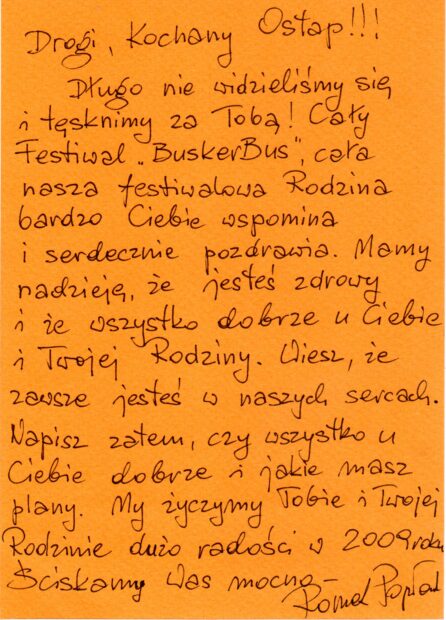 Drogi, Kochany Ostap!!!
Długo nie widzieliśmy się
i tęsknimy za Tobą! Cały
Festiwal „BuskerBus", cała
nasza festiwalowa Rodzina
bardzo Ciebie wspomina
i serdecznie pozdrawia. Mamy
nadzieję, że jesteś zdrowy
i że wszystko dobrze u Ciebie
i Twojej Rodziny. Wiesz, że
zawsze jesteś w naszych sercach.
Napisz zatem, czy wszystko u
Ciebie dobrze i jakie masz
plany. My życzymy Tobie i Twojej
Rodzinie dużo radości w 2009 roku
Ściskamy Was mocno –